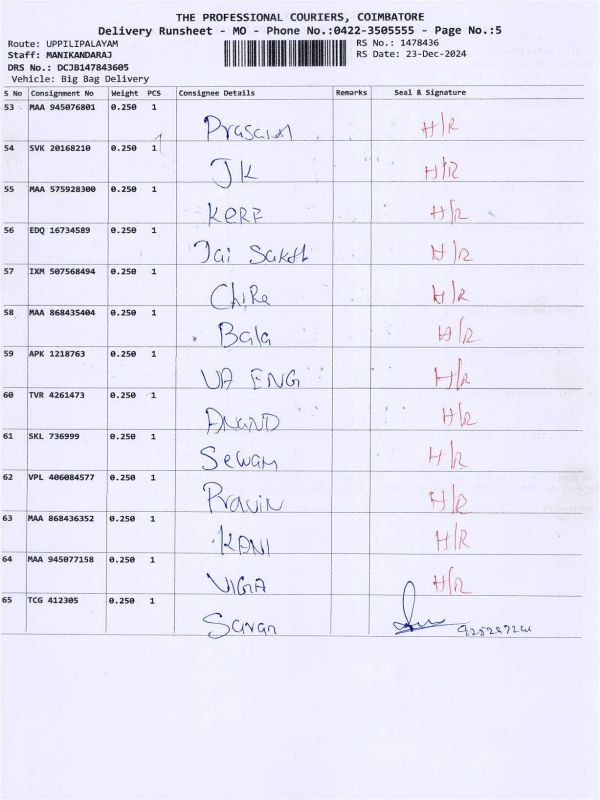 THE PROFESSIONAL COURIERS, COIMBATORE
Delivery Runsheet - MO - Phone No.:0422-3505555 - Page No.:5
Route: UPPILIPALAYAM RS No.: 1478436
Staff: MANIKANDARAJ RS Date: 23-Dec-2024
DRS No.: DCJB147843605
Vehicle: Big Bag Delivery
S No Consignment No Weight PCS Consignee Details Remarks Seal & Signature
53 MAA 945076801 0.250 1
H/R
54 SVK 20168210 0.250 1
JK H/R
55 MAA 575928300 0.250 1
H/R
56 EDQ 16734589 0.250 1
Jai Sakthi H/R
57 IXM 507568494 0.250 1
H/R
58 MAA 868435404 0.250 1
Bala H/R
59 APK 1218763 0.250 1
VA ENG H/R
60 TVR 4261473 0.250 1
ANAND H/R
61 SKL 736999 0.250 1
Sewam H/R
62 VPL 406084577 0.250 1
Pravin H/R
63 MAA 868436352 0.250 1
KANI H/R
64 MAA 945077158 0.250 1
H/R
65 TCG 412305 0.250 1
Saran